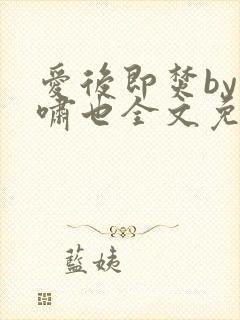 愛後即焚by
嘯也全文免
藍姨